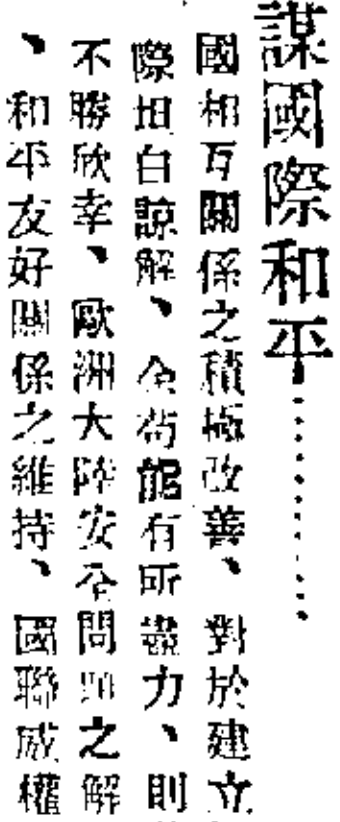 謀國際和平………
國相互關係之積極改善、對於建立
際坦白諒解、余茍能有所盡力、則
不勝欣幸、歐洲大陸安全問題之解
、和平友好關係之維持、國聯威權